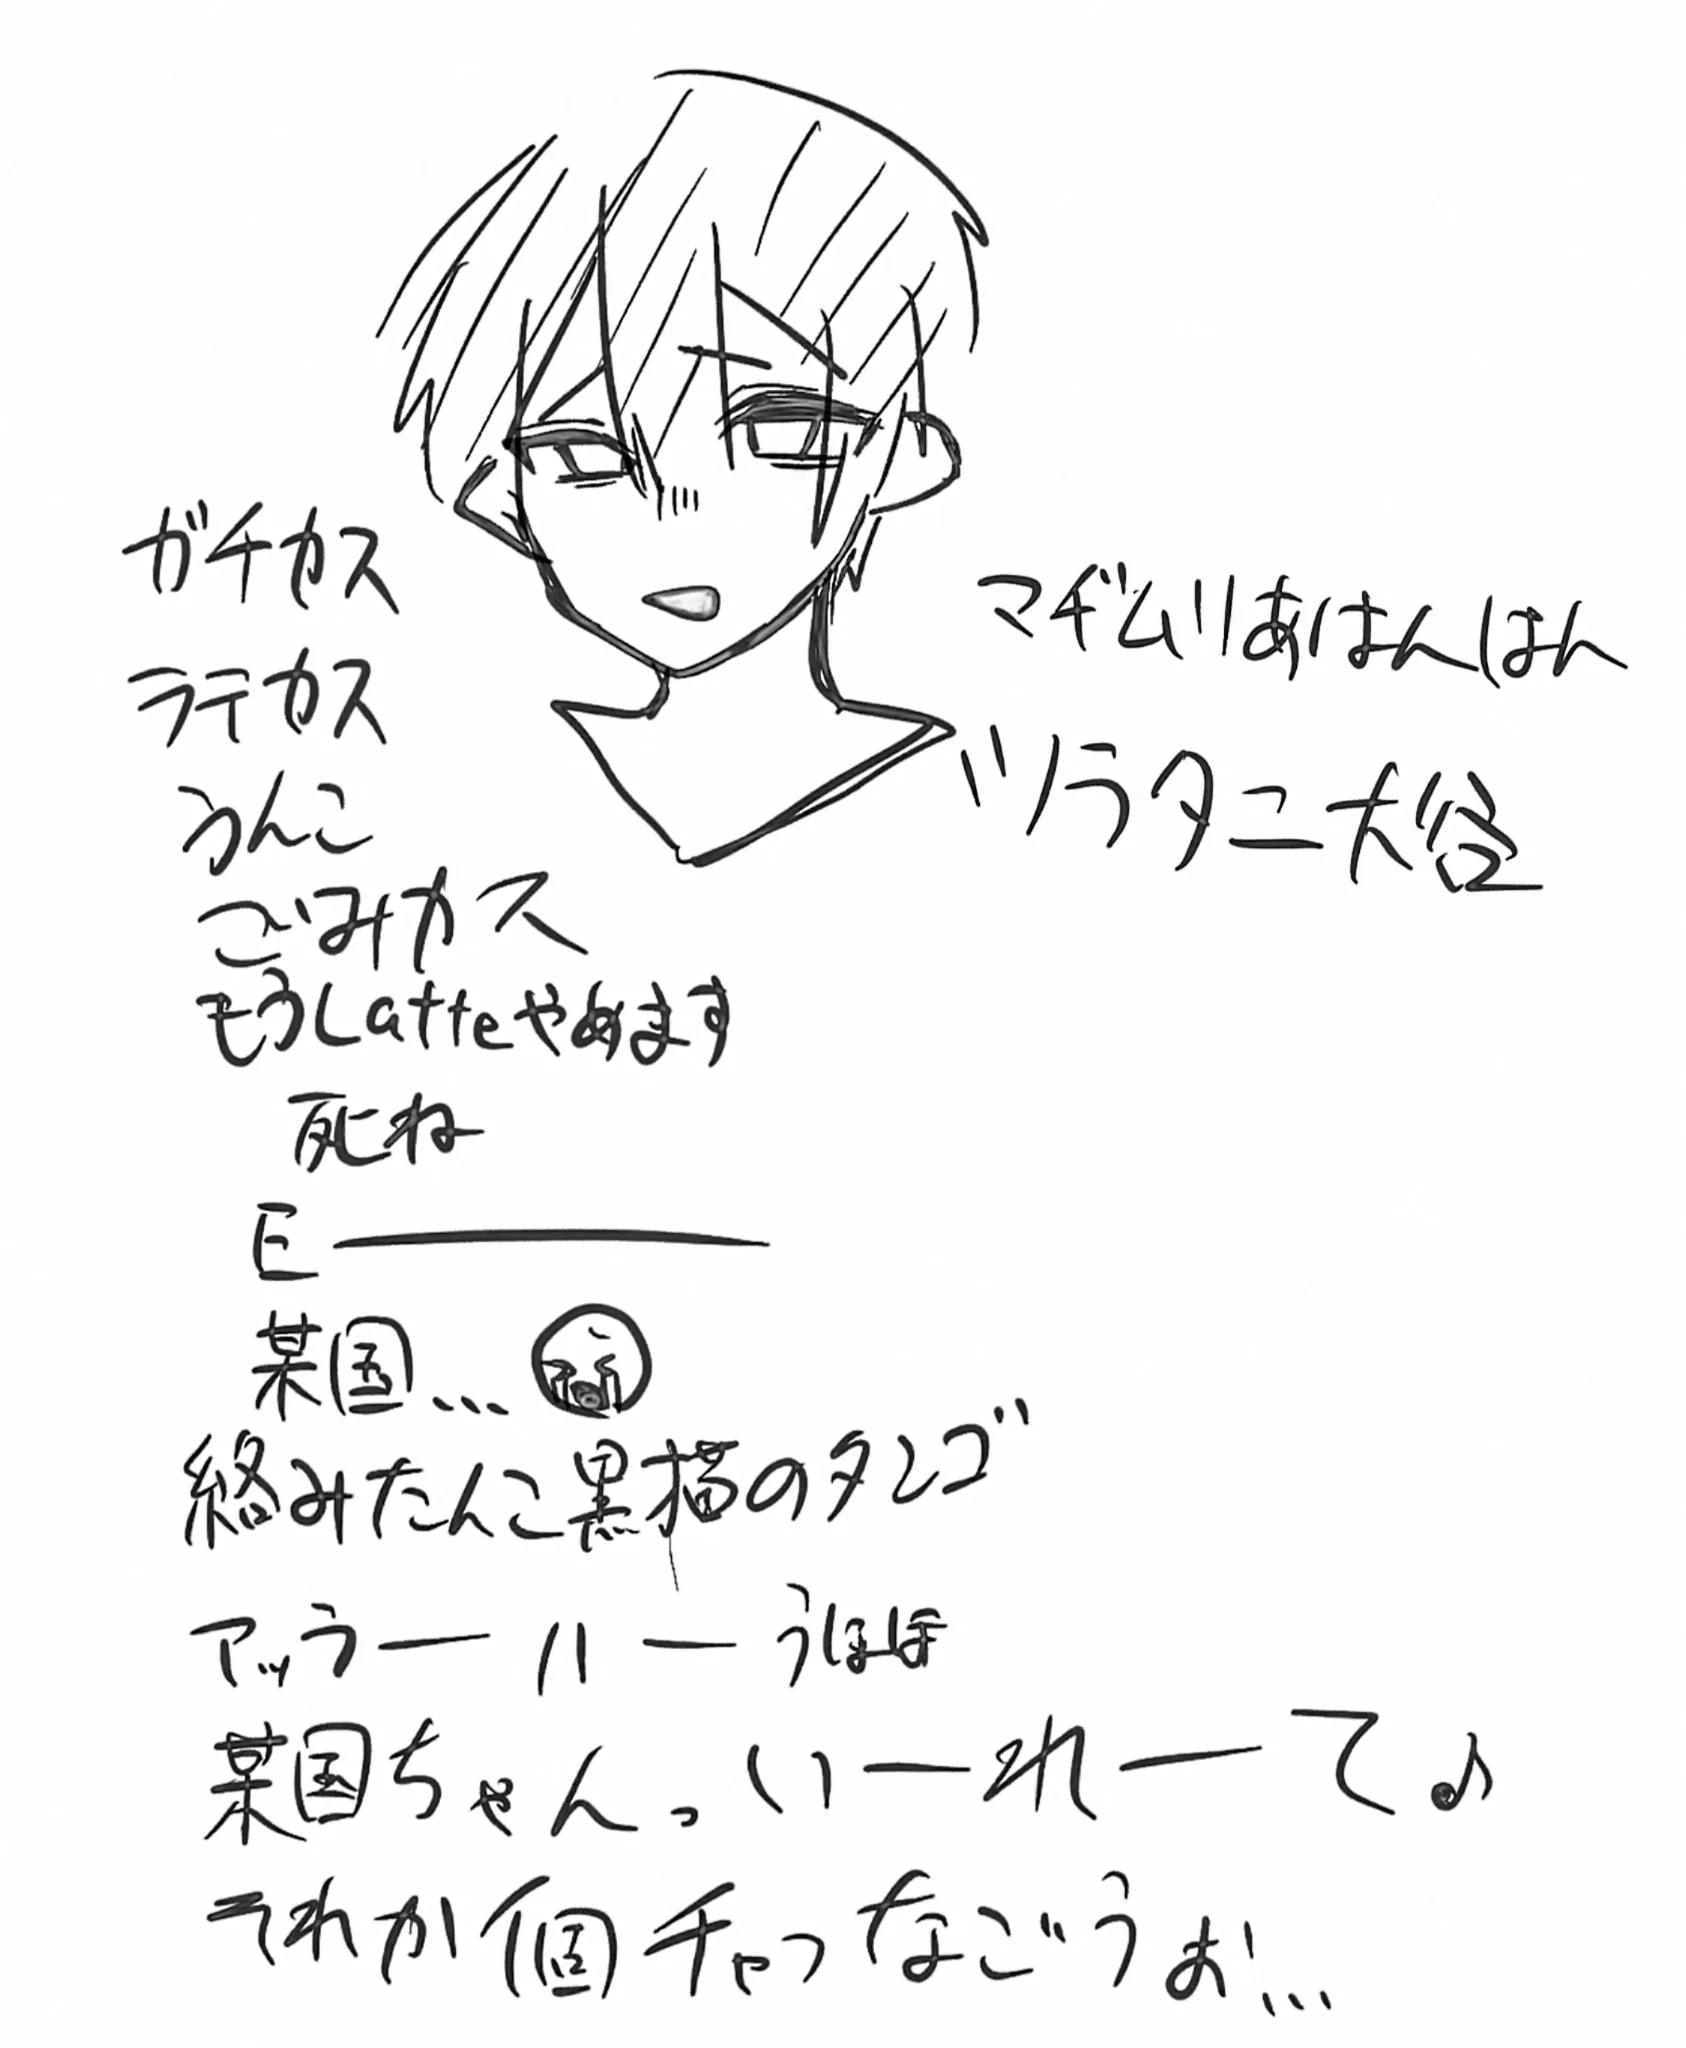 ガチカス
ラテカス
うんこ
ごみカス
もうLatteやめます
死ね
E――――
某国…
絡みたんこ黒猫のタンゴ
アッラーハーうほほ
某国ちゃんっいーれーて♪
それか個チャつなごうぉ…
マヂムリあはんはん
ヅラタニ大谷